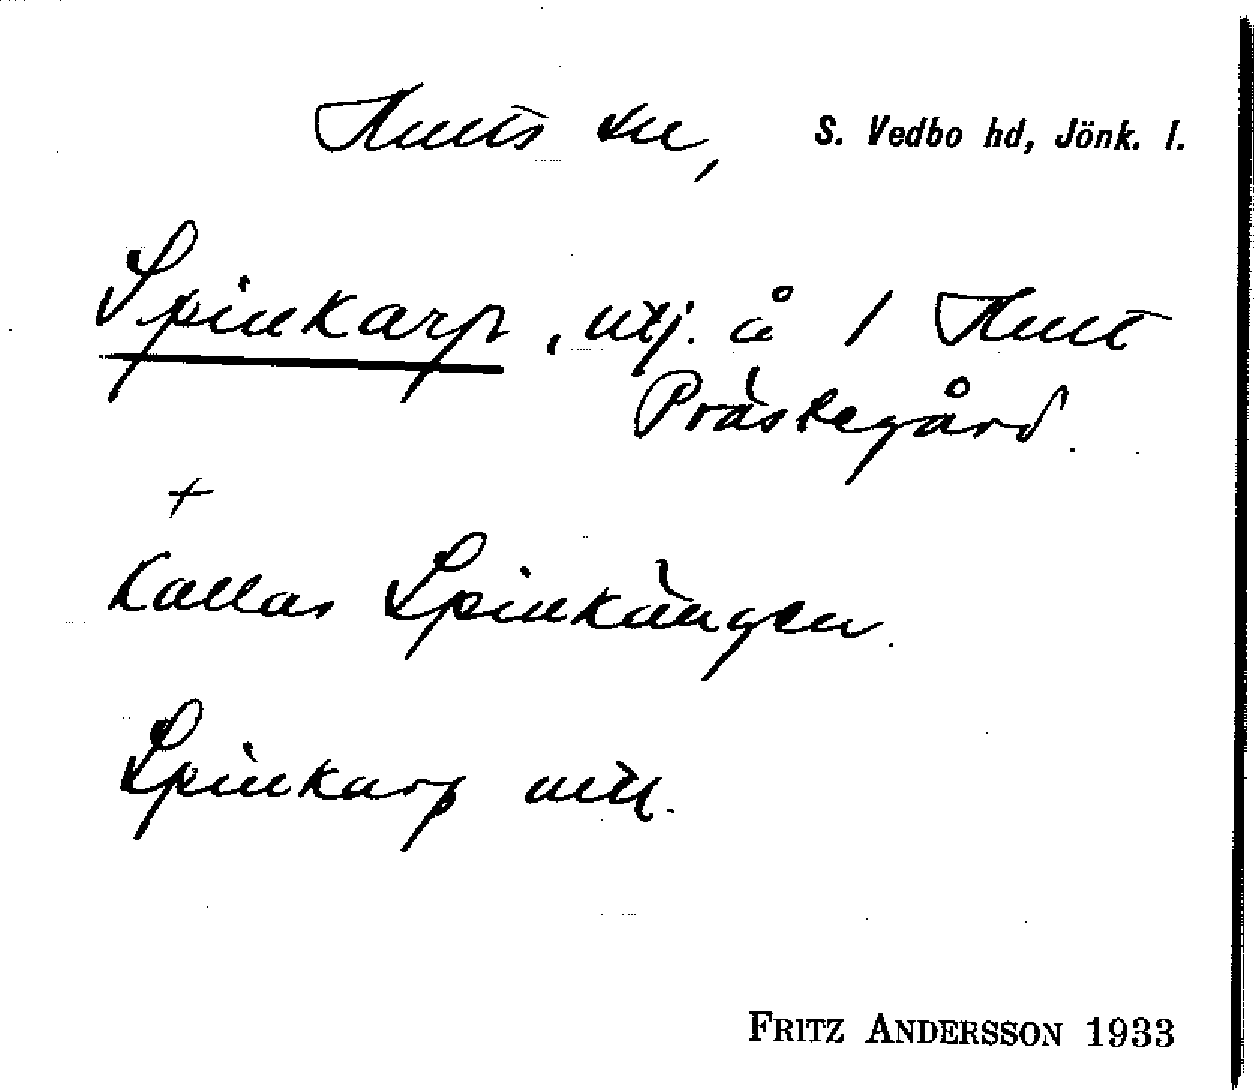 Hults sn, S. Vedbo hd, Jönk. l.
Spinkarp, utj. å 1 Hult
Prästegård.
+
Kallas Spinkängen.
Spinkarp utj.
FRITZ ANDERSSON 1933